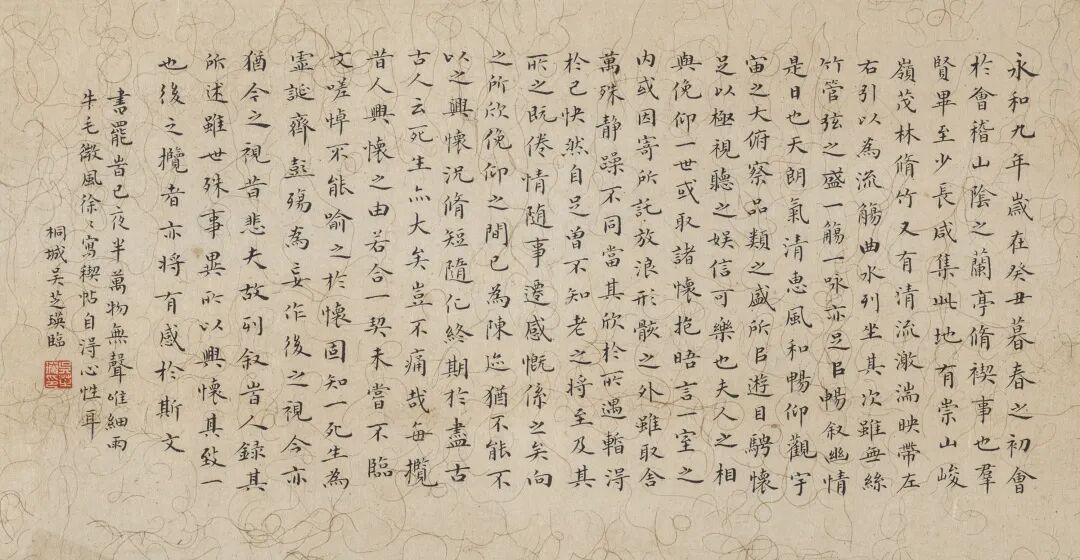 永和九年歲在癸丑暮春之初會
於會稽山陰之蘭亭脩禊事也羣
賢畢至少長咸集此地有崇山峻
嶺茂林脩竹又有清流激湍映帶左
右引以為流觴曲水列坐其次雖無絲
竹管弦之盛一觴一咏亦足㠯暢叙幽情
是日也天朗氣清惠風和暢仰觀宇
宙之大俯察品類之盛所㠯遊目騁懷
足以極視聽之娛信可樂也夫人之相
與俛仰一世或取諸懷抱晤言一室之
内或因寄所託放浪形骸之外雖取舍
萬殊静躁不同當其欣於所遇暫得
於己快然自足曾不知老之將至及其
所之既倦情隨事遷感慨係之矣向
之所欣俛仰之間已為陳迹猶不能不
以之興懷況脩短隨化終期於盡古
古人云死生亦大矣豈不痛哉每攬
昔人興懷之由若合一契未嘗不臨
文嗟悼不能喻之於懷固知一死生為
虛誕齊彭殤為妄作後之視今亦
猶今之視昔悲夫故列叙旹人録其
所述雖世殊事異所以興懷其致一
也後之攬者亦將有感於斯文
書罷旹已夜半萬物無聲唯細雨
牛毛微風徐々寫禊帖自得心性耳
桐城吳芝瑛臨